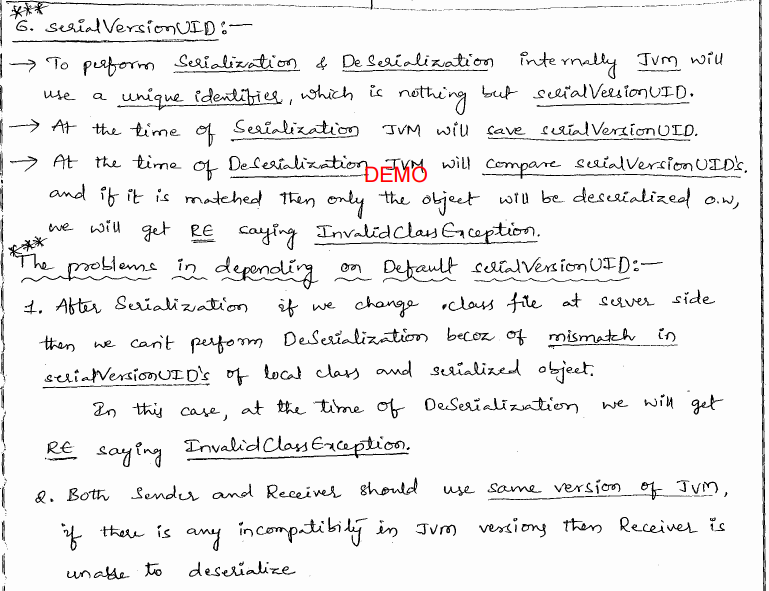 ***
6. serialVersionUID:—
→ To perform Serialization & DeSerialization internally JVM will
use a unique identifier, which is nothing but serialVersionUID.
→ At the time of Serialization JVM will save serialVersionUID.
→ At the time of DeSerialization JVM will compare serialVersionUID's.
DEMO
and if it is matched then only the object will be deserialized o.w,
we will get RE saying InvalidClassException.
***
The problems in depending on Default serialVersionUID:—
1. After Serialization if we change .class file at server side
then we can't perform DeSerialization becoz of mismatch in
serialVersionUID's of local class and serialized object.
In this case, at the time of DeSerialization we will get
RE saying InvalidClassException.
2. Both Sender and Receiver should use same version of JVM,
if there is any incompatibility in JVM versions then Receiver is
unable to deserialize